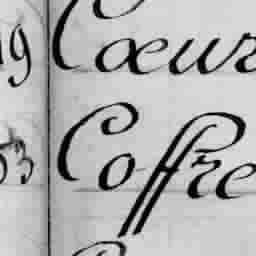 19 Cœur
53 Coffre